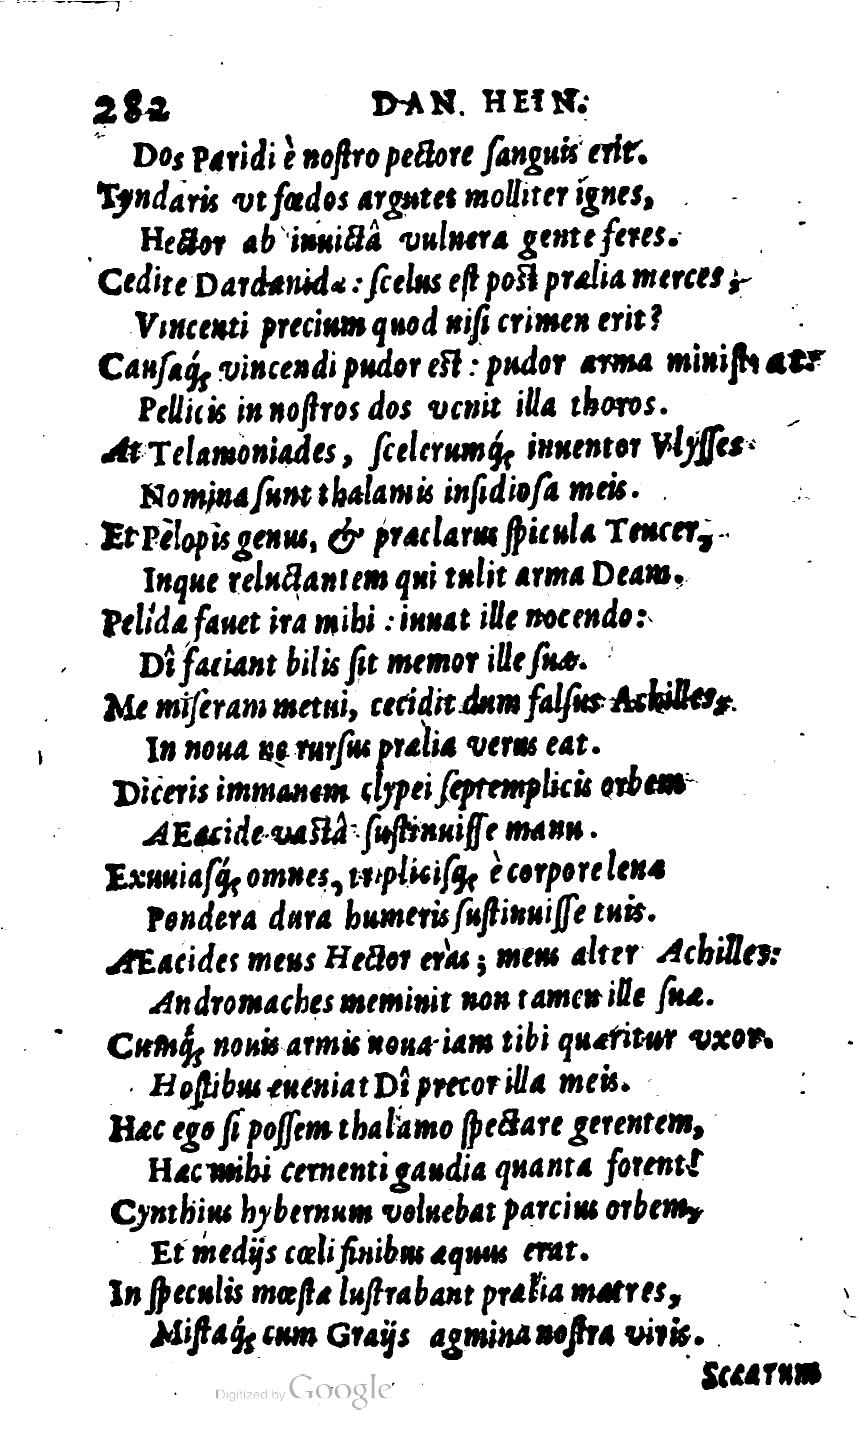 282 DAN. HEIN.
Dos Paridi è nostro pectore sanguis erit.
Tyndaris vt fœdos argutet molliter ignes,
Hector ab inuictâ vulnera gente feres.
Cedite Dardanidæ : scelus est post prælia merces ;
Vincenti precium quod nisi crimen erit?
Causaq́; vincendi pudor est : pudor arma ministrat:
Pellicis in nostros dos venit illa thoros.
At Telamoniades, scelerumq́; inuentor Vlysses
Nomina sunt thalamis insidiosa meis.
Et Pelopis genus, & præclarus spicula Teucer,
Inque reluctantem qui tulit arma Deam.
Pelidæ fauet ira mihi : iuuat ille nocendo:
Dî faciant bilis sit memor ille suæ.
Me miseram metui, cecidit dum falsus Achilles,
In noua ne rursus prælia verus eat.
Diceris immanem clypei septemplicis orbem
AEacide vastâ sustinuisse manu.
Exuuiasq́; omnes, triplicisq; è corpore lena
Pondera dura humeris sustinuisse tuis.
AEacides meus Hector eras ; meus alter Achilles:
Andromaches meminit non tamen ille suæ.
Cumq́; nouis armis noua iam tibi quæritur vxor.
Hostibus eueniat Dî precor illa meis.
Hæc ego si possem thalamo spectare gerentem,
Hæc mihi cernenti gaudia quanta forent!
Cynthius hybernum voluebat parcius orbem,
Et medijs cœli finibus æquus erat.
In speculis mœstæ lustrabant prælia matres,
Mistaq́; cum Graijs agmina nostra viris.
Scæatum
Digitized by Google